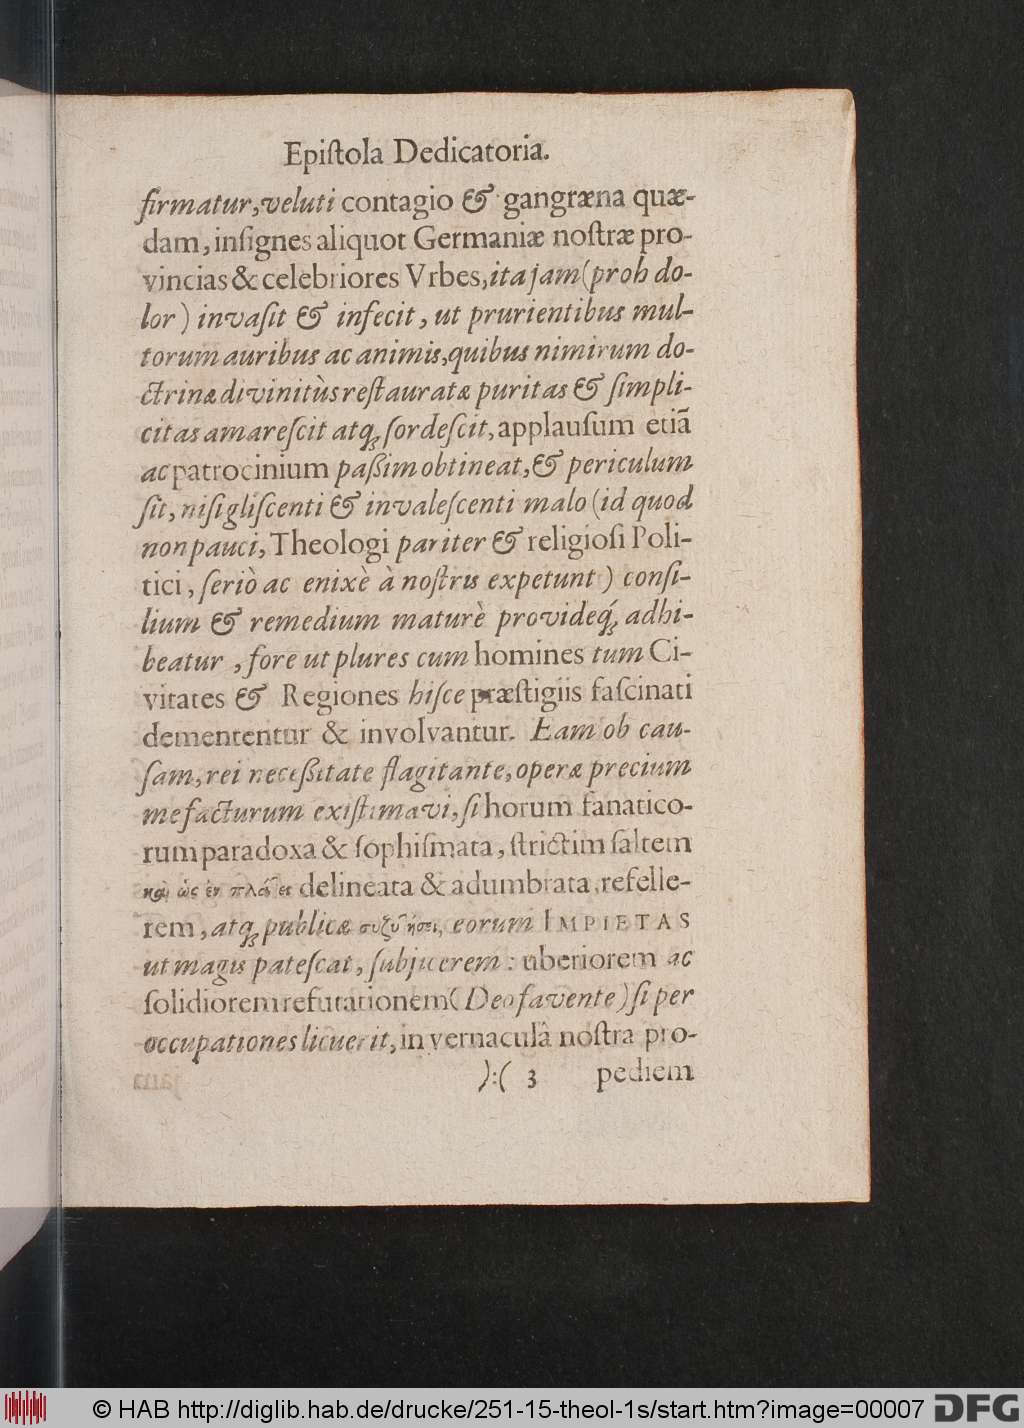 Epiſtola Dedicatoria.
firmatur, veluti contagio & gangræna quæ-
dam, inſignes aliquot Germaniæ noſtræ pro-
vincias & celebriores Vrbes, ita jam (proh do-
lor) invaſit & infecit, ut prurientibus mul-
torum auribus ac animis, quibus nimirum do-
ctrinæ divinitùs reſtauratæ puritas & ſimpli-
citas amareſcit atq; ſordeſcit, applauſum etiã
ac patrocinium paßim obtineat, & periculum
ſit, niſi gliſcenti & invaleſcenti malo (id quod
non pauci, Theologi pariter & religioſi Poli-
tici, ſeriò ac enixè à noſtris expetunt) conſi-
lium & remedium maturè provideq́; adhi-
beatur, fore ut plures cum homines tum Ci-
vitates & Regiones hiſce præſtigiis faſcinati
demententur & involvantur. Eam ob cau-
ſam, rei neceßitate flagitante, operæ precium
me facturum exiſtimavi, ſi horum fanatico-
rum paradoxa & ſophiſmata, ſtrictim ſaltem
καὶ ὡς ἐν delineata & adumbrata, refelle-
rem, atq; publicæ συζητήσει, eorum IMPIETAS
ut magis pateſcat, ſubjicerem: uberiorem ac
ſolidiorem refutationem (Deo favente) ſi per
occupationes licuerit, in vernaculâ noſtra pro-
):( 3 pediem
© HAB http://diglib.hab.de/drucke/251-15-theol-1s/start.htm?image=00007
DFG